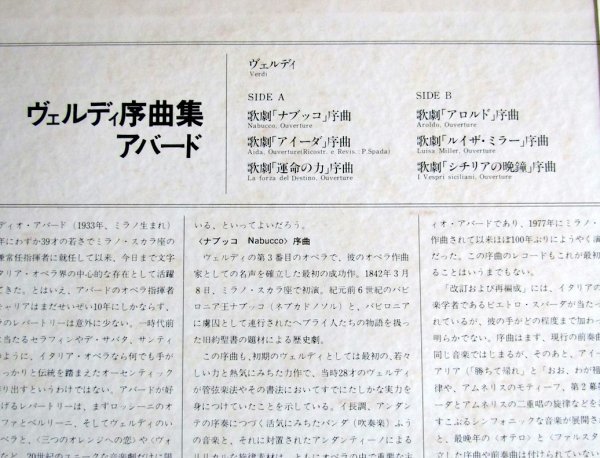 ヴェルディ序曲集
アバード
ヴェルディ
Verdi
SIDE A
歌劇「ナブッコ」序曲
Nabucco, Ouverture
歌劇「アイーダ」序曲
Aida, Ouverture(Ricostr. e Revis.: P.Spada)
歌劇「運命の力」序曲
La forza del Destino, Ouverture
SIDE B
歌劇「アロルド」序曲
Aroldo, Ouverture
歌劇「ルイザ・ミラー」序曲
Luisa Miller, Ouverture
歌劇「シチリアの晩鐘」序曲
I Vespri siciliani, Ouverture
ディオ・アバード（1933年、ミラノ生まれ）
年にわずか39才の若さでミラノ・スカラ座の
兼常任指揮者に就任して以来、今日まで文字
タリア・オペラ界の中心的な存在として活躍
てきた。とはいえ、アバードのオペラ指揮者
キャリアはまだせいぜい10年にしかならず、
のレパートリーは意外に少ない。一時代前
に当たるセラフィンやデ・サバタ、サンティ
のように、イタリア・オペラなら何でも手が
っかりと伝統を踏まえたオーセンティック
作り出すというわけではない。アバードが好
げるレパートリーは、まずロッシーニのオ
ファとベルリーニ、そしてヴェルディのい
ペラと、〈三つのオレンジへの恋〉や〈ヴォ
など、20世紀のユニークな音楽劇だけに限
いる、といってよいだろう。
〈ナブッコ Nabucco〉序曲
ヴェルディの第3番目のオペラで、彼のオペラ作曲
家としての名声を確立した最初の成功作。1842年3月
8日、ミラノ・スカラ座で初演。紀元前6世紀のバビ
ロニア王ナブッコ（ネブカドノゾル）と、バビロニア
に虜囚として連行されたヘブライ人たちの物語を扱っ
た旧約聖書の題材による歴史劇。
この序曲も、初期のヴェルディとしては最初の、若々
しい力と熱気にみちた力作で、当時28才のヴェルディ
が管弦楽法やその書法においてすでにたしかな実力を
身につけていたことを示している。イ長調、アンダン
テの序奏につづく活気にみちたバンダ（吹奏楽）ふう
の音楽と、それに対置されたアンダンティーノによる
リリカルな旋律素材は、ともにオペラの中で重要な主
ィオ・アバードであり、1977年にミラノ・
作曲されて以来ほぼ100年ぶりにようやく演
だった。この序曲のレコードもこれが最初
ることはいうまでもない。
「改訂および再編成」には、イタリアの
楽学者であるピエトロ・スパーダが当たっ
れているが、彼の手がどの程度まで加わっ
明らかでない。序曲はまず、現行の前奏曲
同じ音楽ではじまるが、そのあと、アイー
アリア（「勝ちて帰れ」と「おお、わが祖
律や、アムネリスのモティーフ、第2幕
ーダとアムネリスの二重唱の旋律などをお
すこぶるシンフォニックな音楽が展開さ
と、最晩年の〈オテロ〉と〈ファルス
立した序曲や前奏曲は付けられていない